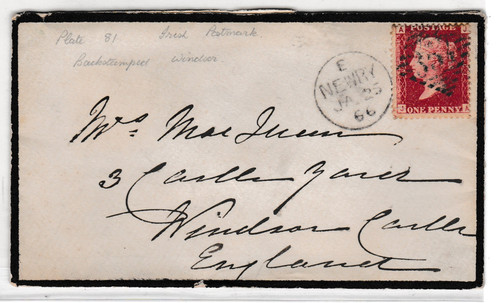 Plate 81 Fred Postmark
Backstamped Windsor
A POSTAGE J
E
NEWRY
JA 25
66
J ONE PENNY A
Mrs Mac
3 Castle
Windsor Castle
England